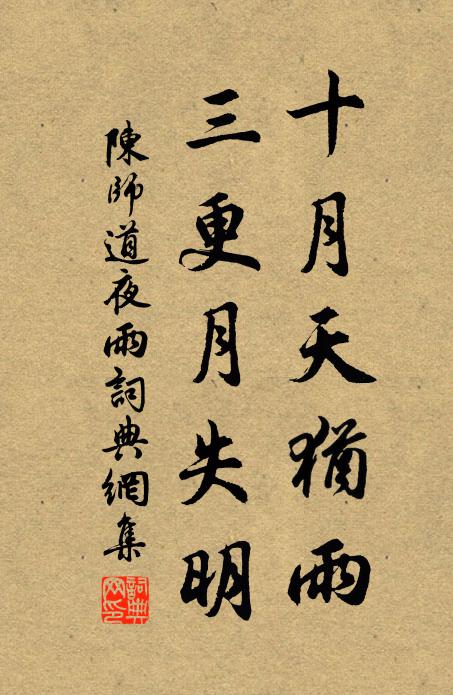 十月天猶雨
三更月失明
陳師道夜雨詞典網集
詞典網印